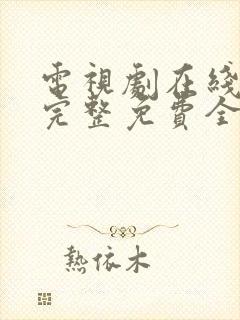 電視劇在綫
完整免費全
熱依木